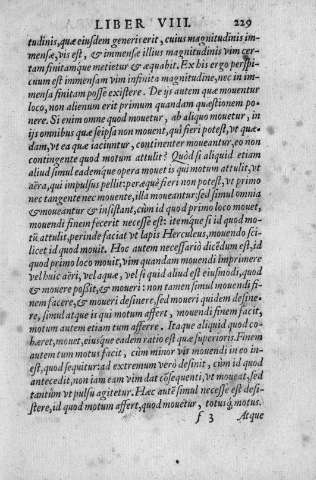 LIBER VIII. 229
tudinis, quæ eiusdem generis erit, cuius magnitudinis im-
mensæ, vis est, & immensæ illius magnitudinis vim cer-
tam finitamque metietur & æquabit. Ex his ergo perspi-
cuum est immensam vim infinita magnitudine, nec in im-
mensa finitam posse existere. De ijs autem quæ mouentur
loco, non alienum erit primum quandam quæstionem po-
nere. Si enim omne quod mouetur, ab aliquo mouetur, in
ijs omnibus quæ seipsa non mouent, qui fieri potest, vt quæ-
dam, vt ea quæ iaciuntur, continenter moueantur, eo non
contingente quod motum attulit? Quòd si aliquid etiam
aliud simul eademque opera mouet is qui motum attulit, vt
aëra, qui impulsus pellit: peræquè fieri non potest, vt primo
nec tangente nec mouente, illa moueantur: sed simul omnia
& moueantur & insistant, cùm id quod primo loco mouet,
mouendi finem fecerit necesse est: itemque si id quod mo-
tū attulit, perinde faciat vt lapis Herculeus, mouendo sci-
licet id quod mouit. Hoc autem necessariò dicēdum est, id
quod primo loco mouit, vim quandam mouendi imprimere
vel huic aëri, vel aquæ, vel si quid aliud est eiusmodi, quod
& mouere possit, & moueri: non tamen simul mouendi fi-
nem facere, & moueri desinere, sed moueri quidem desine-
re, simul atque is qui motum affert, mouendi finem facit,
motum autem etiam tum afferre. Itaque aliquid quod co-
hæret, mouet, eiusque eadem ratio est quæ superioris. Finem
autem tum motus facit, cùm minor vis mouendi in eo in-
est, quod sequitur: ad extremum verò desinit, cùm id quod
antecedit, non iam eam vim dat cōsequenti, vt moueat, sed
tantùm vt pulsu agitetur. Hæc autē simul necesse est desi-
stere, id quod motum affert, quod mouetur, totusq; motus.
f 3 Atque